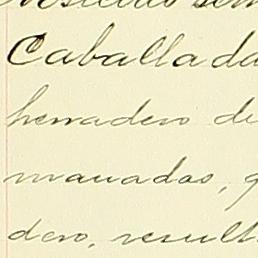 Caballada
herradero de
manadas,
dero, result